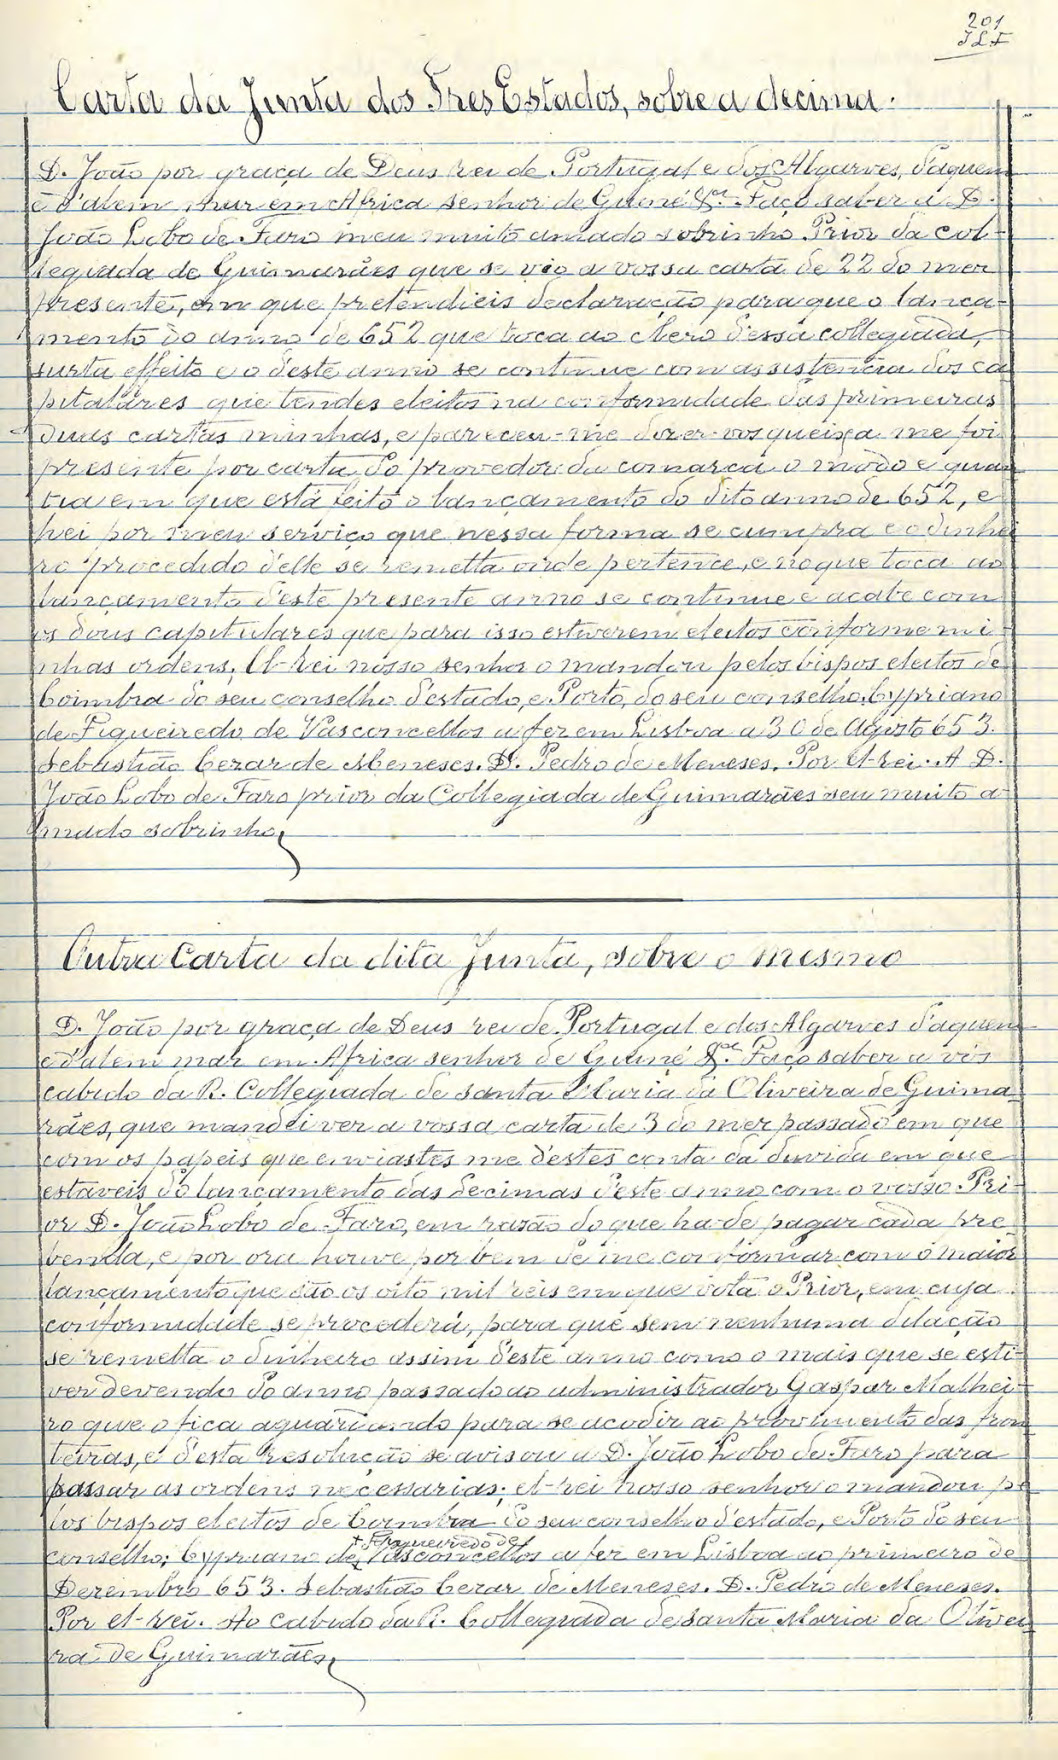 201
JLF
Carta da Junta dos Tres Estados, sobre a decima.
D. João por graça de Deus rei de Portugal e dos Algarves, d'aquem
e d'alem mar em Africa senhor de Guiné &.ª Faço saber a D.
João Lobo de Faro meu muito amado sobrinho Prior da Col-
legiada de Guimarães que se vio a vossa carta de 22 do mez
presente, em que pretendieis declaração para que o lança-
mento do anno de 652 que toca ao clero d'essa collegiada,
surta effeito e o deste anno se continue com assistencia dos ca
pitulares que tendes eleitos na conformidade das primeiras
duas cartas minhas, e pareceu-me dizer-vos queixa me foi
presente por carta do provedor da comarca o modo e quan
tia em que está feito o lançamento do dito anno de 652, e
hei por meu serviço que nessa forma se cumpra e o dinhei
ro procedido d'elle se remetta onde pertence, e no que toca ao
lançamento d'este presente anno se continue e acabe com
os dous capitulares que para isso estiverem eleitos conforme mi-
nhas ordens. El-rei nosso senhor o mandou pelos bispos eleitos de
Coimbra do seu conselho d'estado, e Porto, do seu conselho. Cypriano
de Figueiredo de Vasconcellos a fez em Lisboa a 30 de Agosto 653.
Sebastião Cezar de Meneses. D. Pedro de Meneses. Por el-rei. A D.
João Lobo de Faro prior da Collegiada de Guimarães seu muito a-
mado sobrinho.
Outra Carta da dita Junta, sobre o mesmo
D. João por graça de Deus rei de Portugal e dos Algarves d'aquem
e d'alem mar em Africa senhor de Guiné &.ª Faço saber a vós
cabido da R. Collegiada de Santa Maria da Oliveira de Guima-
rães, que mandei ver a vossa carta de 3 do mez passado em que
com os papeis que enviastes me déstes conta da duvida em que
estaveis do lançamento das decimas d'este anno com o vosso Pri-
or D. João Lobo de Faro, em razão do que ha-de pagar cada pre
benda, e por ora houve por bem de me conformar com o maior
lançamento que são os oito mil reis em que vota o Prior, em cuja
conformidade se procederá, para que sem nenhuma dilação
se remetta o dinheiro assim d'este anno como o mais que se esti-
ver devendo do anno passado ao administrador Gaspar Malhei-
ro que o fica aguardando para se acodir ao provimento das fron
teiras, e d'esta resolução se avisou a D. João Lobo de Faro para
passar as ordens necessarias; el-rei nosso senhor o mandou pe
los bispos eleitos de Coimbra do seu conselho d'estado, e Porto do seu
conselho; Cypriano de Figueiredo de Vasconcellos a fez em Lisboa ao primeiro de
Dezembro 653. Sebastião Cezar de Meneses. D. Pedro de Meneses.
Por el-rei. Ao cabido da R. Collegiada de Santa Maria da Olivei
ra de Guimarães.